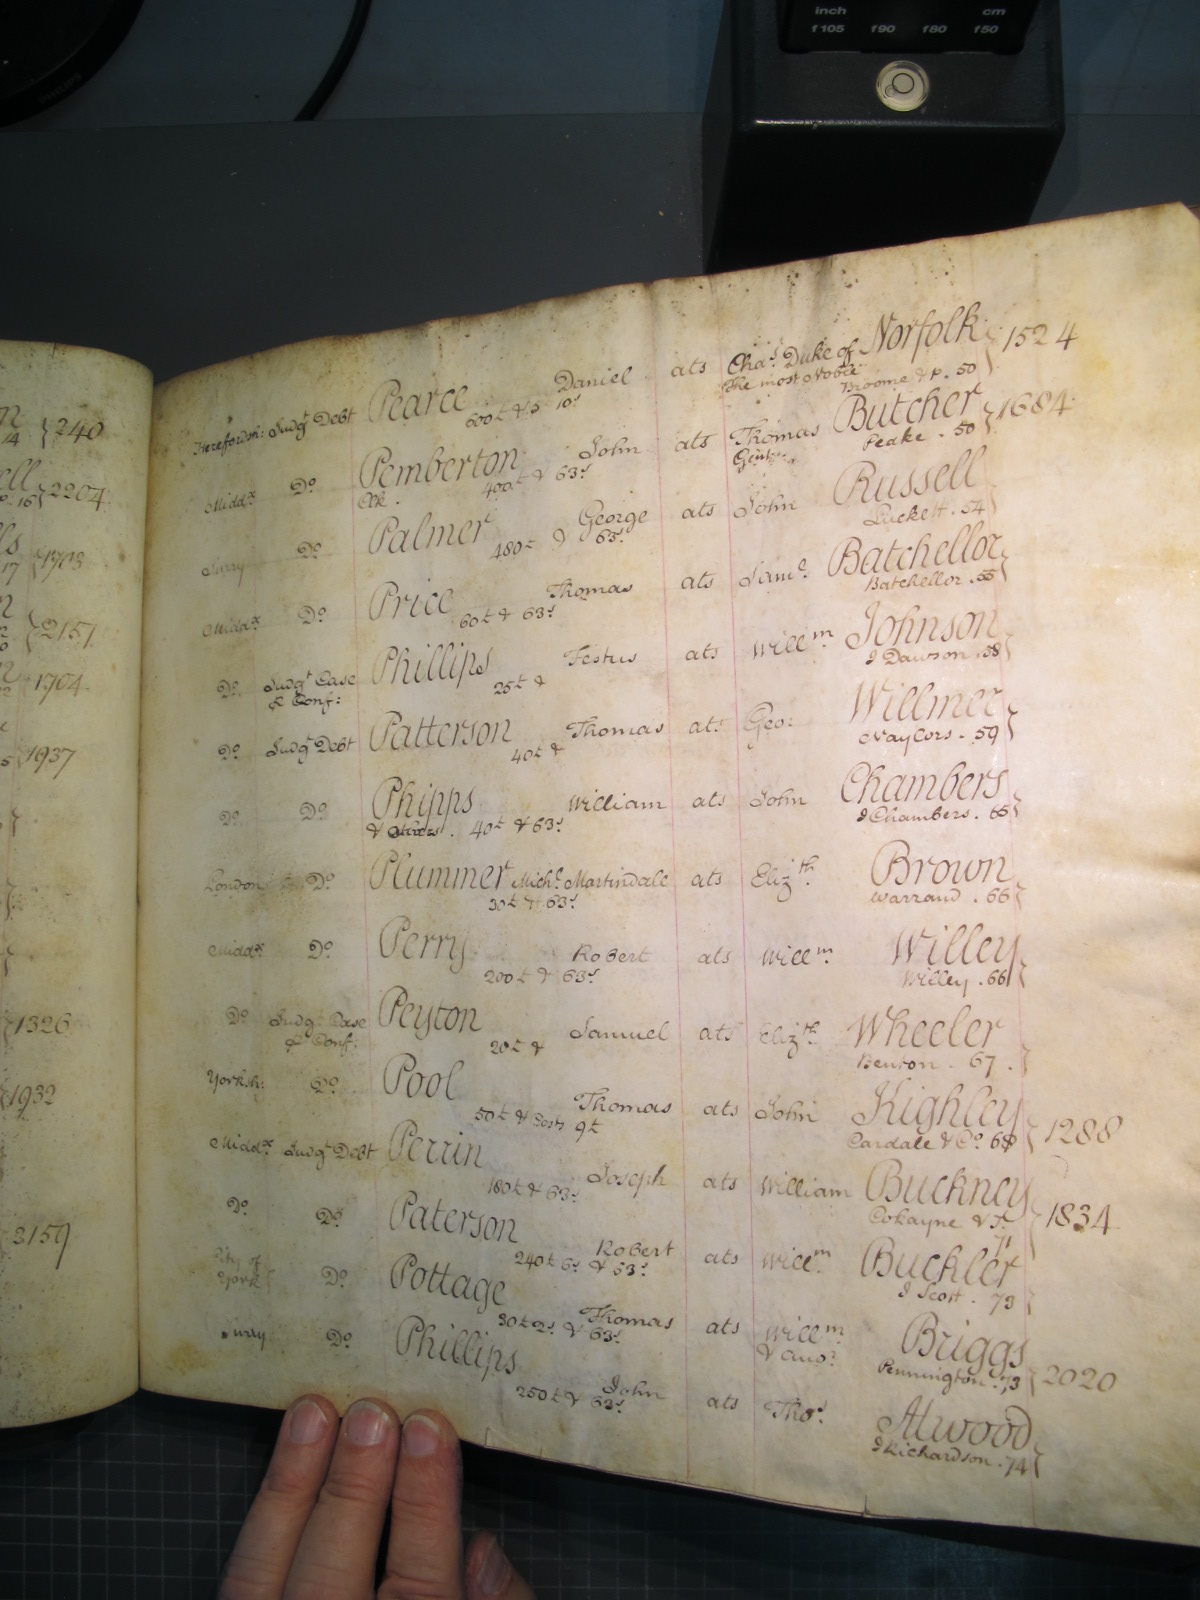 inch cm
1105 190 180 150
PHILIPS
14 } 240
P. 16 } 2204
17 } 1703
} 2157
} 1704
} 1937
} 1326
} 1932
2159
Herefordsh: Judgt Debt Pearce Daniel ats Chas. Duke of Norfolk } 1524
600£ & 10s The most Noble Broome & P. 50
Middx Do Pemberton John ats Thomas Butcher } 1684
Clk. 400£ & 63s Gentn. Peake . 50
Surry Do Palmer George ats John Russell
480£ & 63s Luckett . 54
Middx Do Price Thomas ats Saml. Batchellor
60£ & 63s Batchellor . 55
Do Judgt Case Phillips Festus ats Willm Johnson
& Conf: 25£ & J Dawson . 58
Do Judgt Debt Patterson Thomas ats Geo: Willmer
40£ & 59
Do Do Phipps William ats John Chambers
& 40£ & 63s J Chambers . 65
London Do Plummer Michl Martindale ats Elizth. Brown
30£ & 63s Warrand . 66
Middx Do Perry Robert ats Willm. Willey
200£ & 63s Willey . 66
Do Judgt Case Peyton Samuel ats Elizth Wheeler
& Conf: 20£ & Benton . 67 .
Yorksh: Do Pool Thomas ats John Kighley } 1288
50£ & Costs 9£ Cardale & Co. 68
Middx Judgt Debt Perrin Joseph ats William Buckney } 1834
180£ & 63s Cokayne & T. 71
Do Do Paterson Robert ats Willm Buckler
240£ 6s & 63s J Scott . 73
City of York Do Pottage Thomas ats Willm Briggs } 2020
30£ 2s & 63s & anor. Pennington . 73
Surry Do Phillips John ats Thos. Atwood
250£ & 63s J Richardson . 74